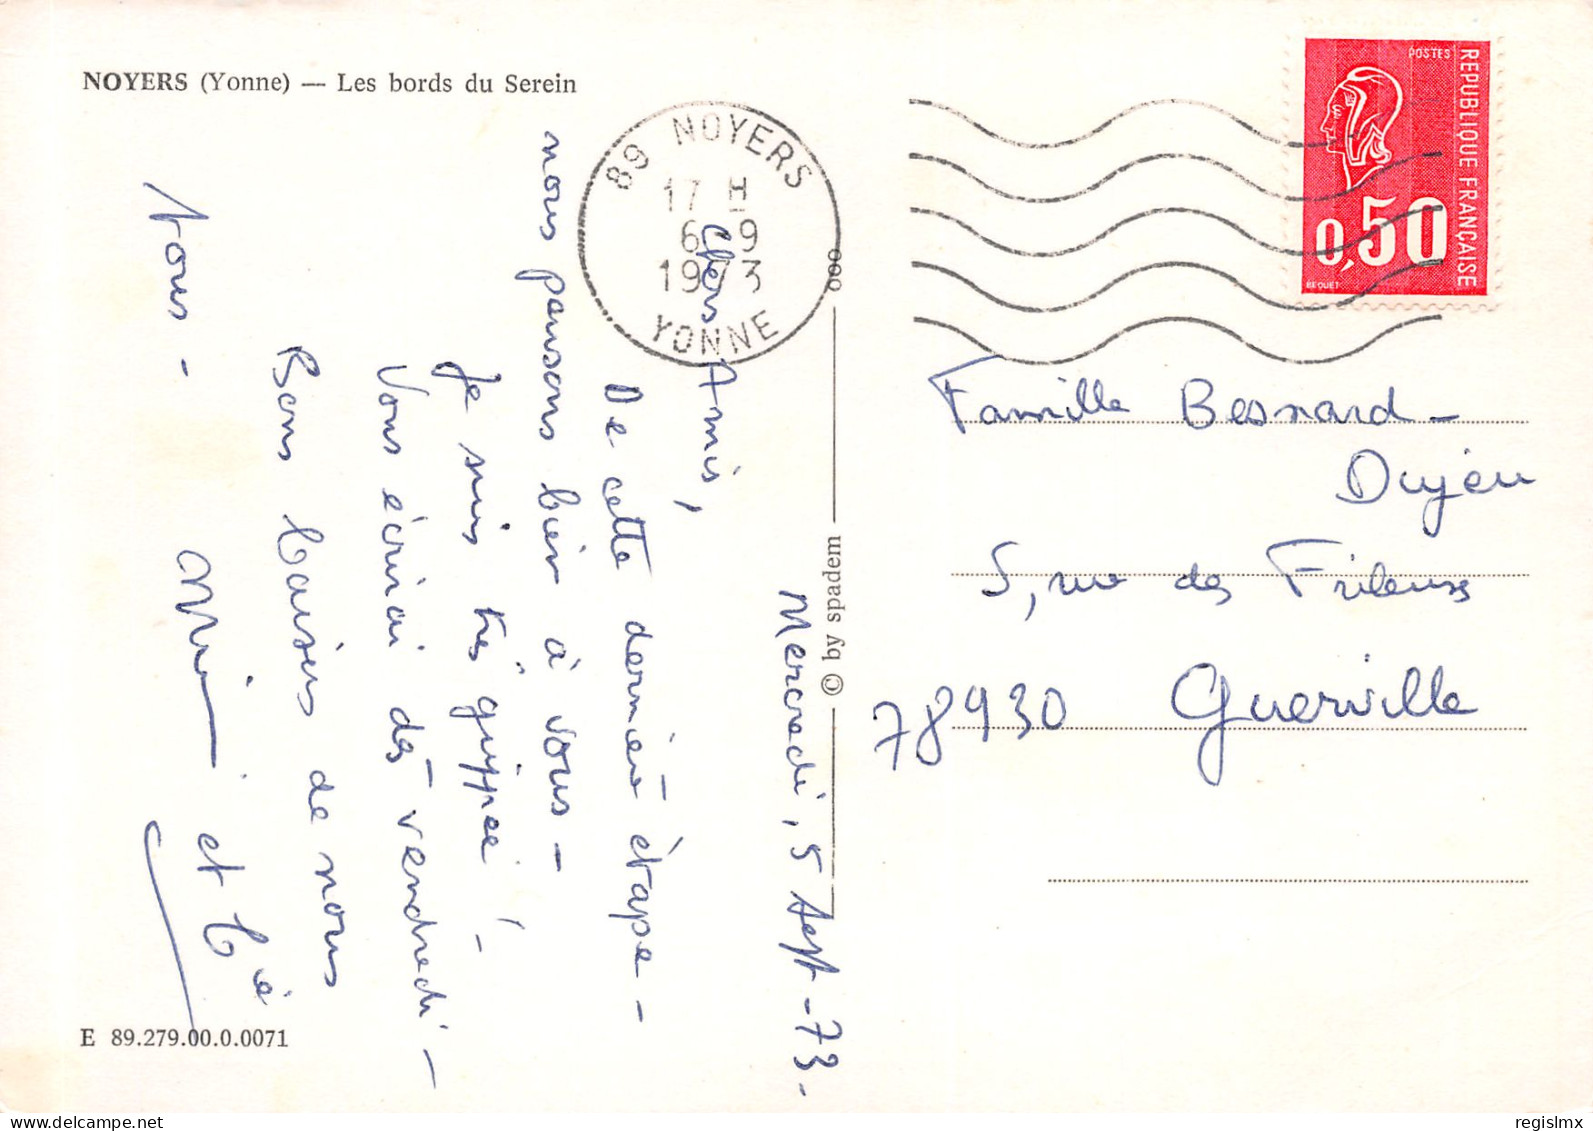 NOYERS (Yonne) — Les bords du Serein
89 NOYERS
17 H
6 9
1973
YONNE
POSTES
REPUBLIQUE FRANÇAISE
0,50
BEQUET
Mercredi, 5 Sept - 73.
Chers Amis,
De cette dernière étape -
nous pensons bien à vous -
Je suis très grippée ! -
Vous écrirai dès vendredi -
Bons baisers de nous
tous -
et
Famille Besnard -
Dujeu
5, rue des Frileuses
78930 Guerville
© by spadem
E 89.279.00.0.0071
delcampe.net
regislmx